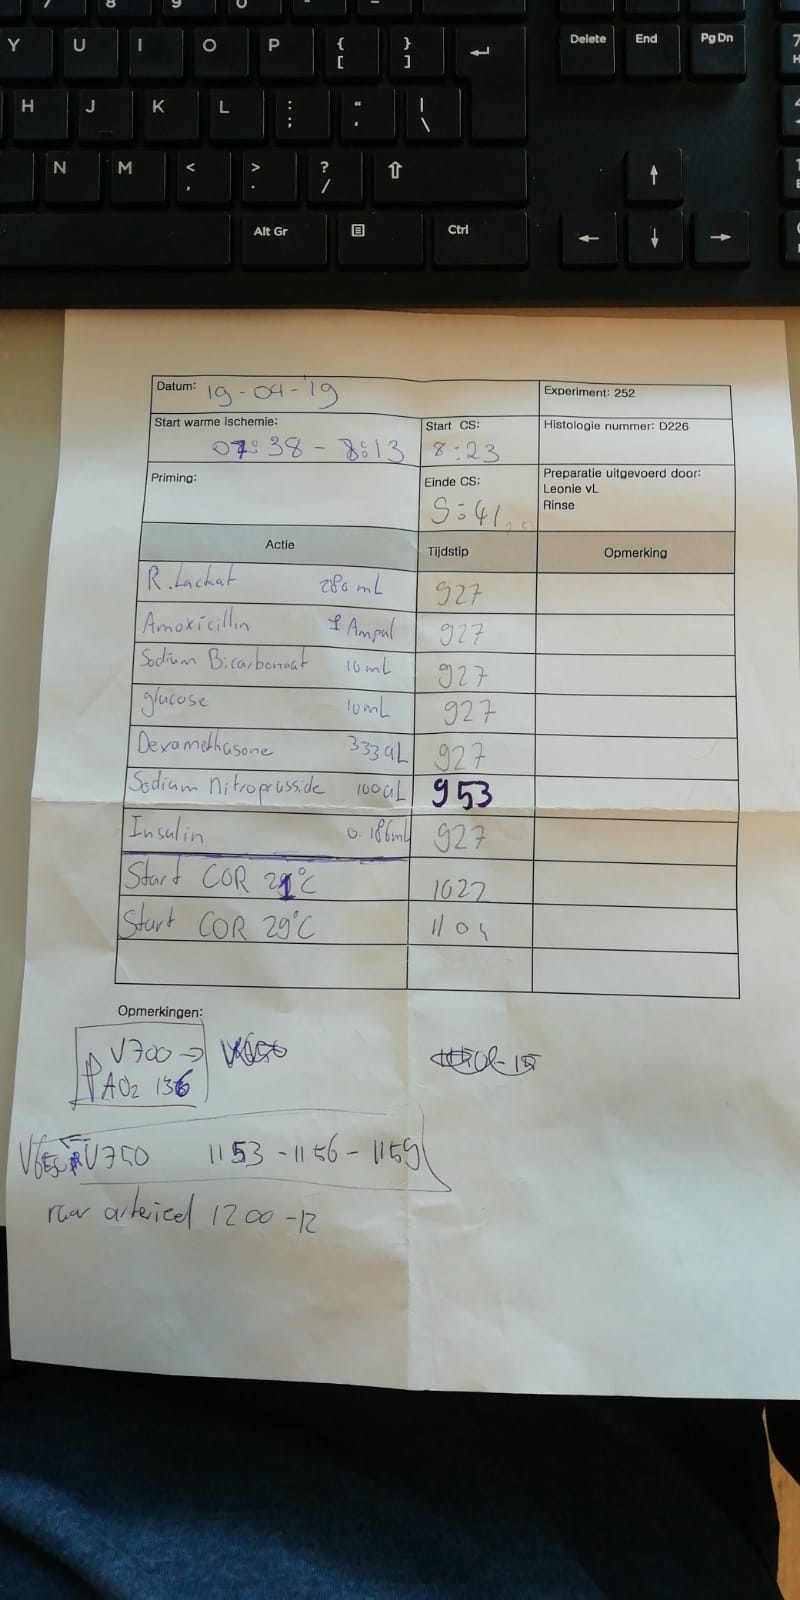 7 8 9 0 -
Y U I O P { [ } ] Delete End PgDn
H J K L : ; " ' | \
N M < , > . ? /
Alt Gr Ctrl
Datum: 19-04-'19
Experiment: 252
Start warme ischemie:
07:38 - 8:13
Start CS:
8:23
Histologie nummer: D226
Priming:
Einde CS:
9:41
Preparatie uitgevoerd door:
Leonie vL
Rinse
Actie Tijdstip Opmerking
R. Lactaat 280 mL 927
Amoxicillin 1 Ampul 927
Sodium Bicarbonaat 10 mL 927
glucose 10mL 927
Dexamethasone 333 uL 927
Sodium Nitroprusside 100 uL 953
Insulin 0.186mL 927
Start COR 21°C 1022
Start COR 29°C 1104
Opmerkingen:
V700 →
↑ AO2 136
V750 1153 - 1156 - 1159
naar arterieel 1200 - 12